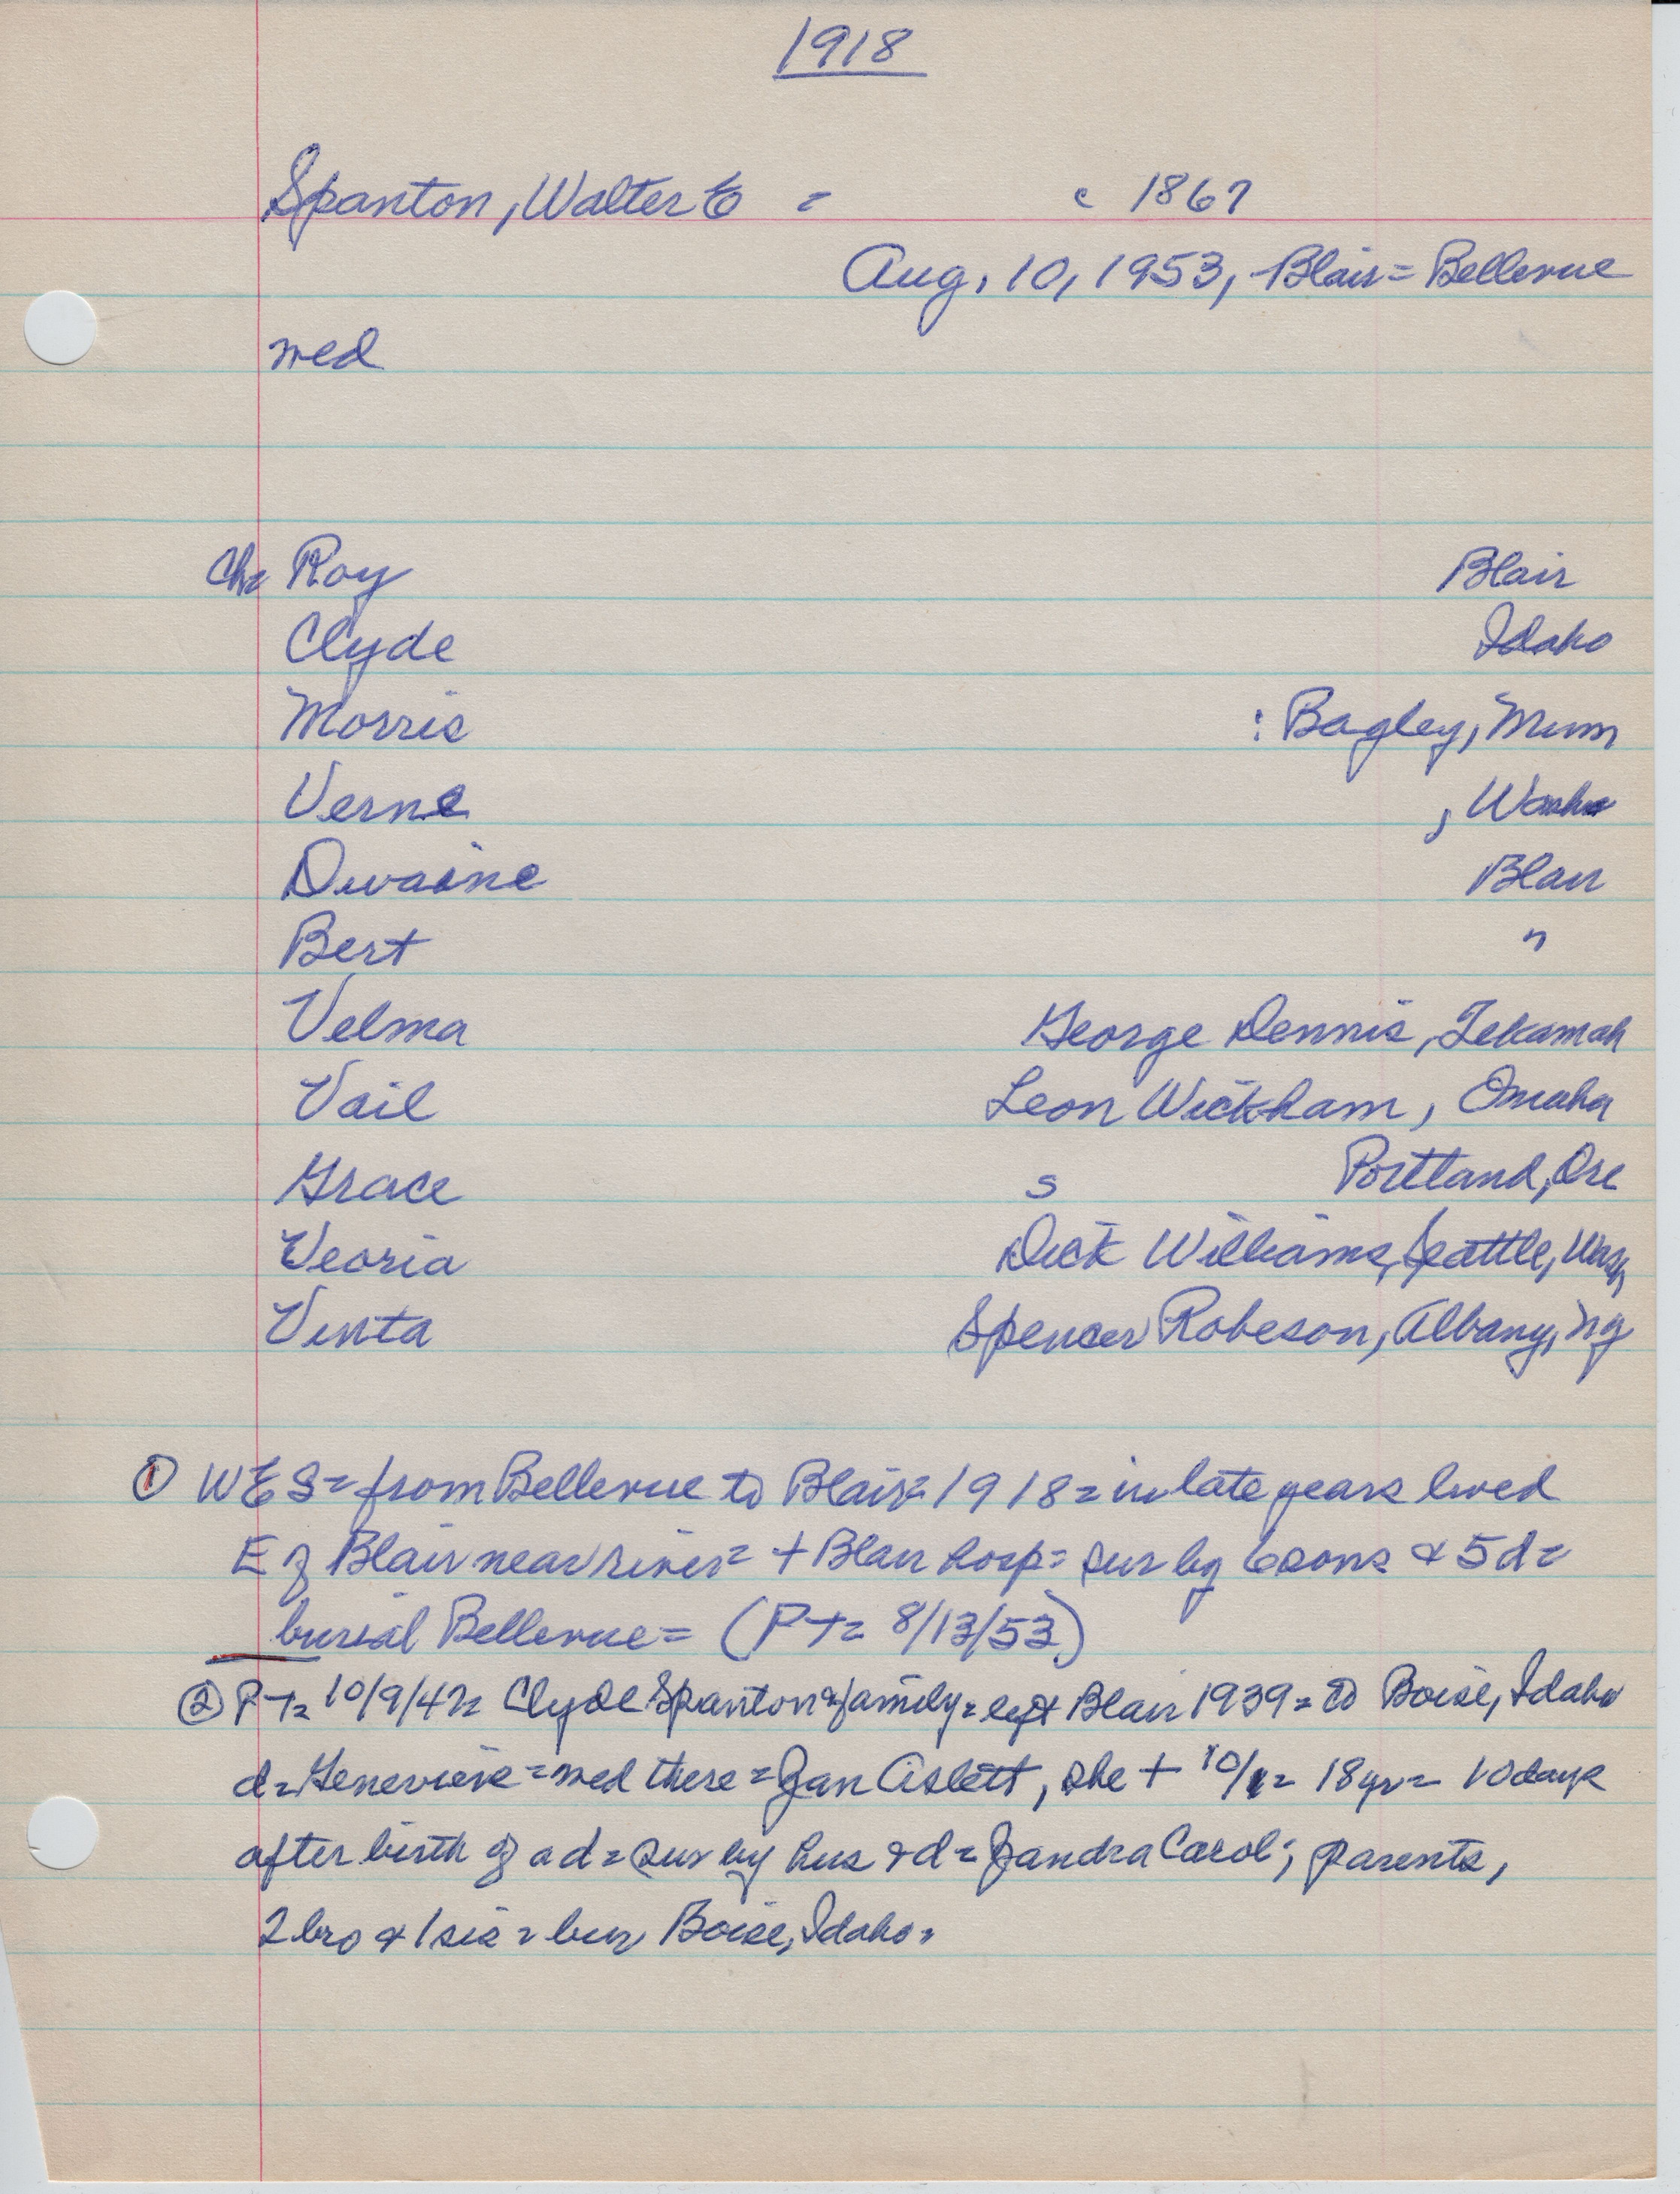 1918
Spanton, Walter E = c 1867
Aug. 10, 1953, Blair = Bellevue
med
Ch= Roy Blair
Clyde Idaho
Morris : Bagley, Minn
Verne , Wash
Dwaine Blair
Bert "
Velma George Dennis, Tekamah
Vail Leon Wickham, Omaha
Grace s Portland, Ore
Veoria Dick Williams, Seattle, Wash
Venta Spencer Robeson, Albany, Ny
① WES = from Bellevue to Blair = 1918 = in late years lived
E of Blair near river = + Blair hosp = sur by 6 sons & 5 d =
burial Bellevue = (PT = 8/13/53)
② PT = 10/9/42 = Clyde Spanton & family = left Blair 1939 = to Boise, Idaho
d = Genevieve = med there = Jan Aslett, she + 10/1 = 18 yr = 10 days
after birth of a d = sur by hus & d = Jandra Carol; parents,
2 bro & 1 sis = bur Boise, Idaho =